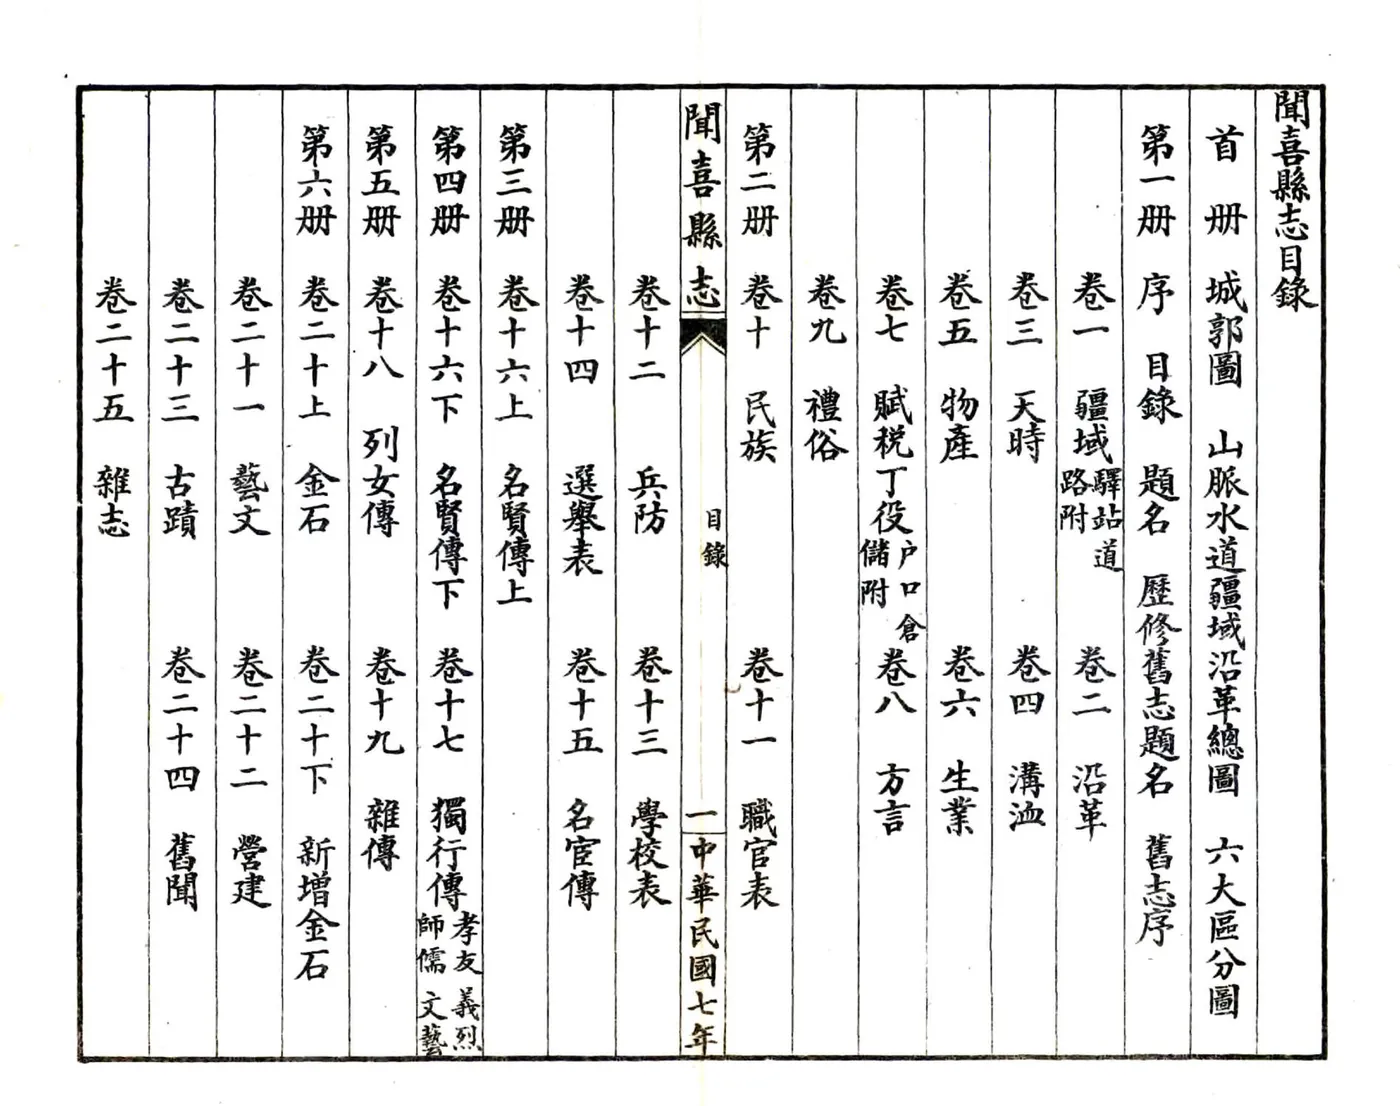 聞喜縣志目錄
首册　城郭圖　山脈水道疆域沿革總圖　六大區分圖
第一册　序　目錄　題名　歷修舊志題名　舊志序
卷一　疆域驛站道路附　卷二　沿革
卷三　天時　卷四　溝洫
卷五　物產　卷六　生業
卷七　賦税丁役户口倉儲附　卷八　方言
卷九　禮俗
第二册　卷十　民族　卷十一　職官表
聞喜縣志　目錄　一　中華民國七年
卷十二　兵防　卷十三　學校表
卷十四　選舉表　卷十五　名宦傳
第三册　卷十六上　名賢傳上
第四册　卷十六下　名賢傳下　卷十七　獨行傳孝友　義烈師儒　文藝
第五册　卷十八　列女傳　卷十九　雜傳
第六册　卷二十上　金石　卷二十下　新增金石
卷二十一　藝文　卷二十二　營建
卷二十三　古蹟　卷二十四　舊聞
卷二十五　雜志